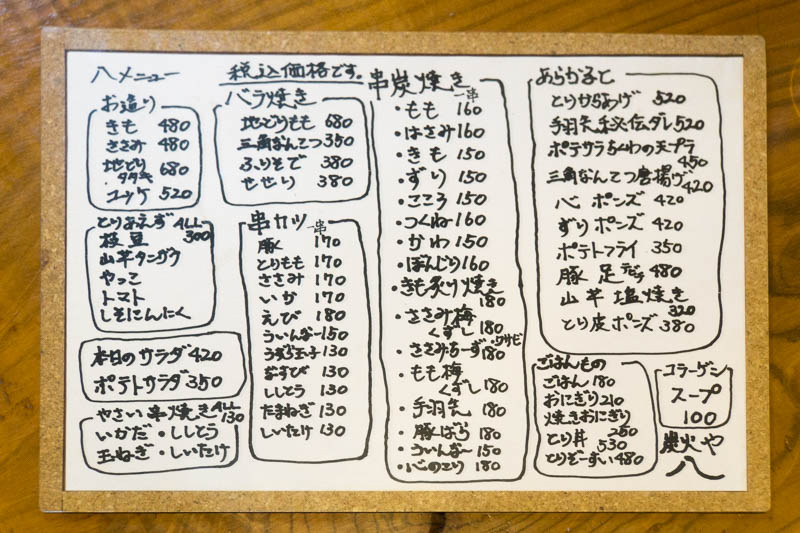 八メニュー
税込価格です。
お造り
きも 480
ささみ 480
地どり
タタキ 680
ユッケ 520
とりあえず ALL
300
枝豆
山芋タンザク
やっこ
トマト
しそにんにく
本日のサラダ 420
ポテトサラダ 350
やさい串焼き ALL
130
いかだ・ししとう
玉ねぎ・しいたけ
バラ焼き
地どりもも 680
三角なんこつ 350
ふりそで 380
せせり 380
串カツ 一串
豚 170
とりもも 170
ささみ 170
いか 170
えび 180
ういんなー 150
うずら玉子 130
なすび 130
ししとう 130
たまねぎ 130
しいたけ 130
串炭焼き
一串
・もも 160
・はさみ 160
・きも 150
・ずり 150
・こころ 150
・つくね 160
・かわ 150
・ぼんじり 160
・きも炙り焼き
180
・ささみ梅
くずし 180
ワサビ
・ささみちーず 180
・もも梅
くずし 180
・手羽先 180
・豚ばら 180
・ういんなー 150
・心のこり 180
あらかると
とりからあげ 520
手羽先秘伝ダレ 520
ポテサラちくわの天プラ
450
三角なんこつ唐揚げ
420
心ポンズ 420
ずりポンズ 420
ポテトフライ 350
豚足 480
山芋塩焼き
320
とり皮ポンズ 380
ごはんもの
ごはん 180
おにぎり 210
焼きおにぎり
250
とり丼 530
とりぞーすい 480
コラーゲン
スープ
100
炭火や
八